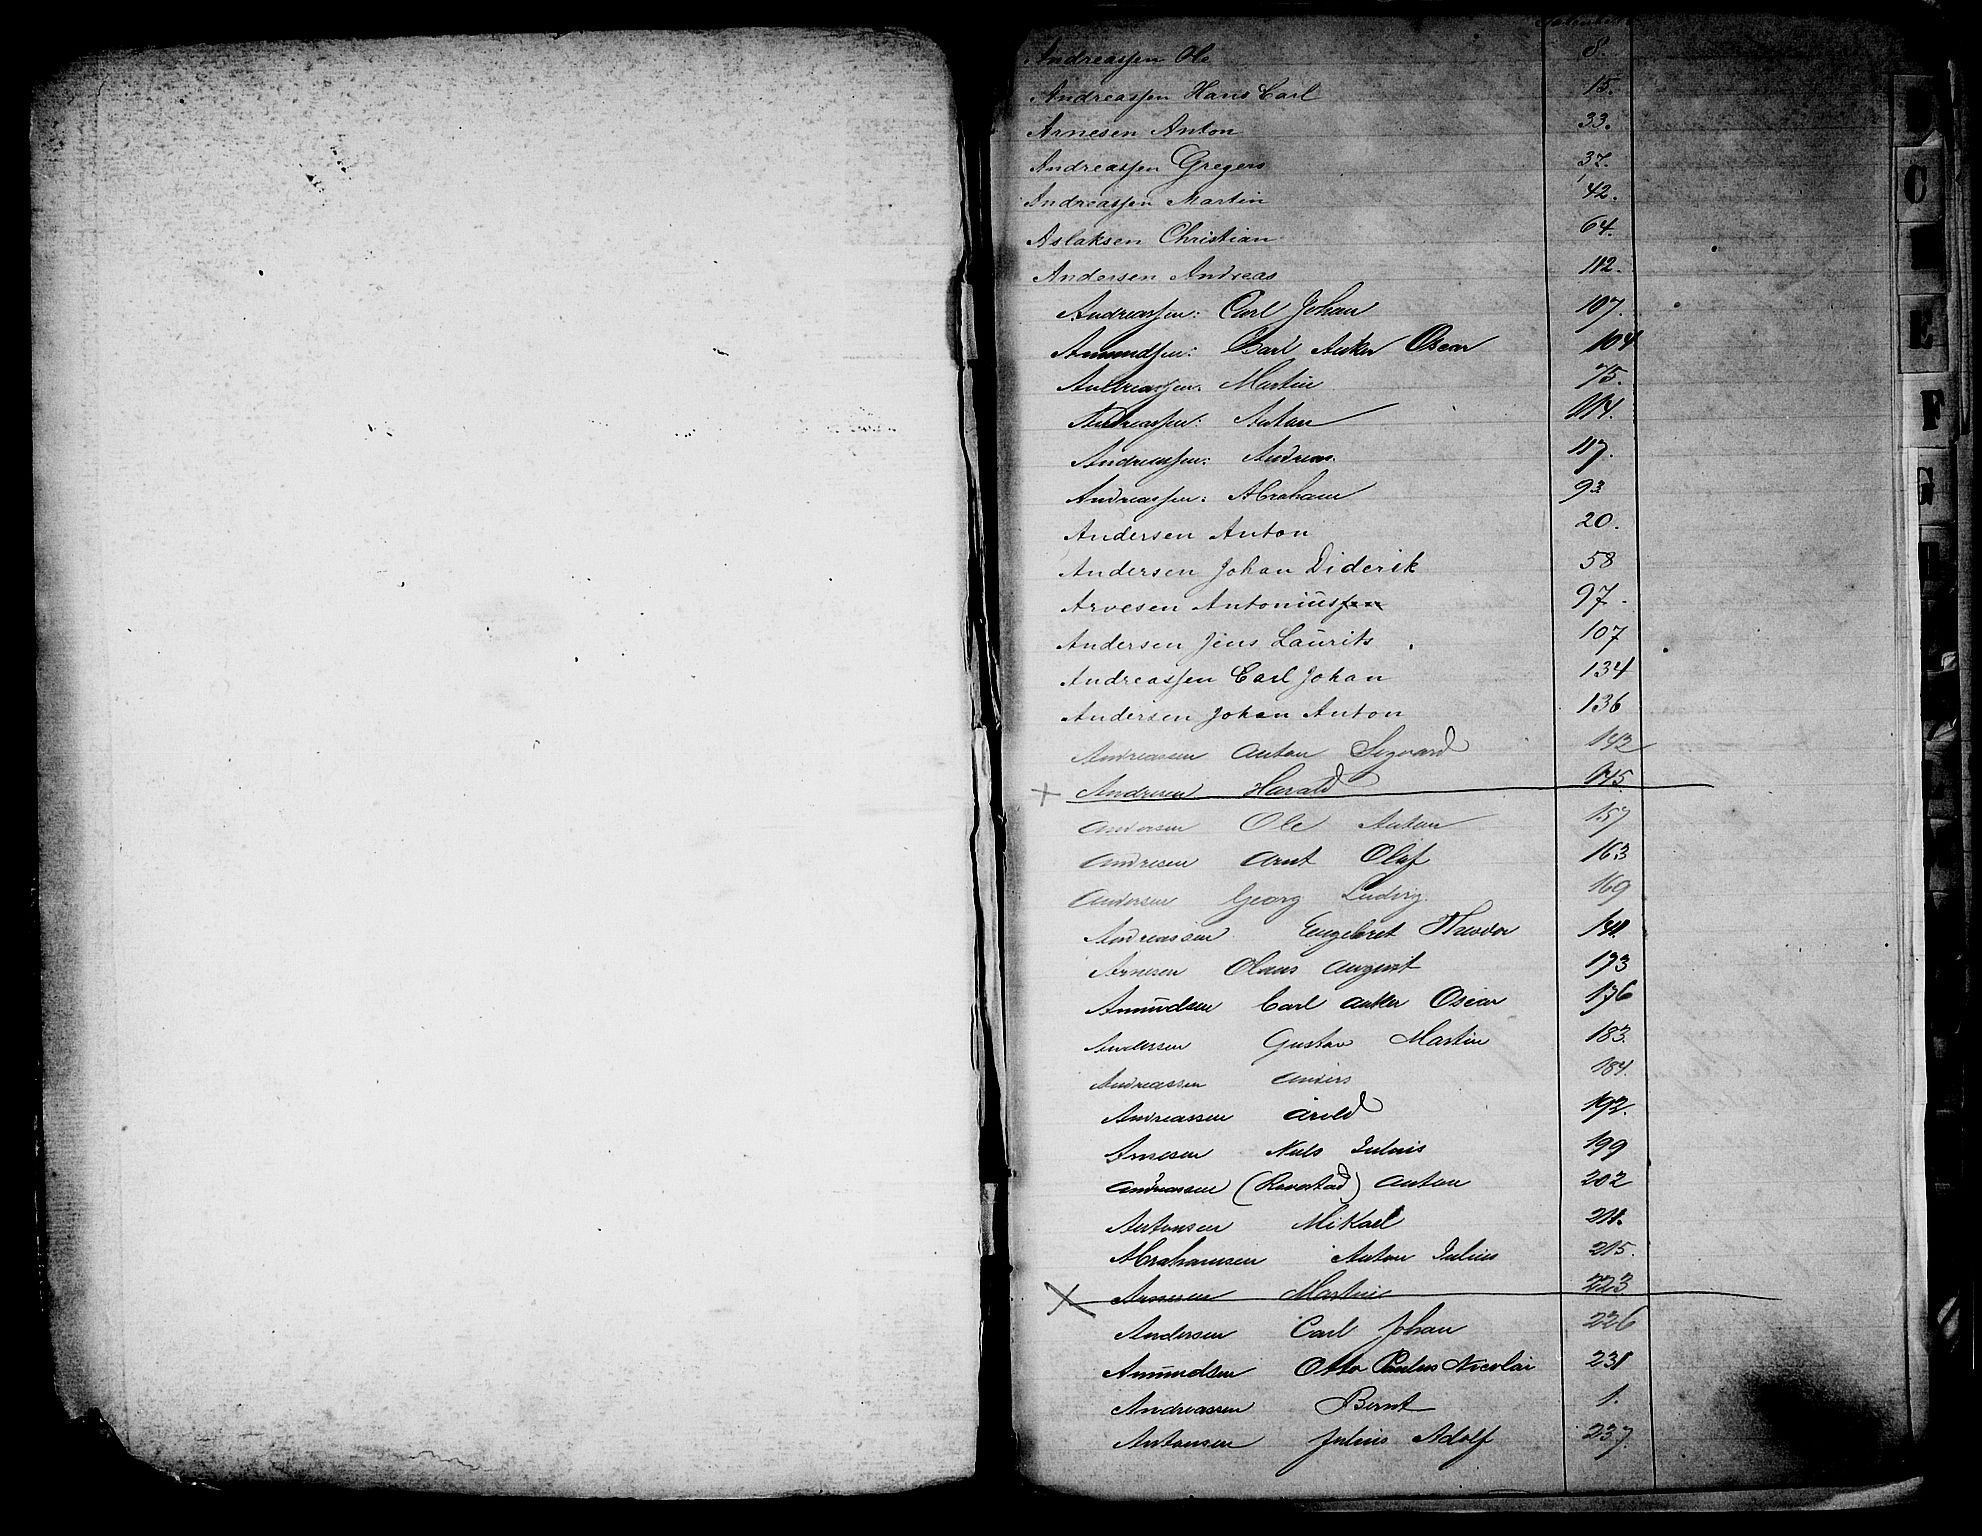 Andreasſen Ole 8
Andreasſen Hans Carl 15.
Arnesen Anton 33.
Andreasſen Gregers 37.
Andreasſen Martin 42.
Aslaksen Christian 64.
Andersen Andreas 112.
Andreasſen: Carl Johan 107.
Amundſen: Carl Anker Oscar 104
Andreasſen: Martin 75.
Andreasſen: Anton 114.
Andreasſen: Andreas. 117.
Andreasſen: Abraham 93
Andersen Anton 20.
Andersen Johan Diderik 58
Arvesen Antoniusſen 97.
Andersen Jens Laurits 107
Andreasſen Carl Johan 134
Andersen Johan Anton 136
Andreassen Anton Sigvard 142
Andresen Harald 145.
Andersen Ole Anton 157
Andresen Arnt Olaf 163
Andersen Georg Ludvig. 169
Andreassen Engebret Theodor
Arnesen Olaus August 173
Amundsen Carl Anker Oscar 176
Andersen Gustav Martin 183.
Andreassen Anders 184.
Andreassen Arild 192.
Arnesen Niels Julius 199
Andreassen (Revestad) Anton 202
Antonsen Mikael 211.
Abrahamsen Anton Julius 215.
Arnesen Martin 223
Andersen Carl Johan 226
Amundsen Otto Paulus Nicolai 231
Andreassen Bernt 1.
Antonsen Julius Adolf 237.
C
E
F
G